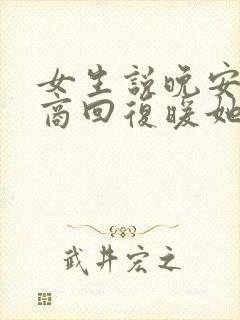 女生説晚安
商回復暖她
武井宏之